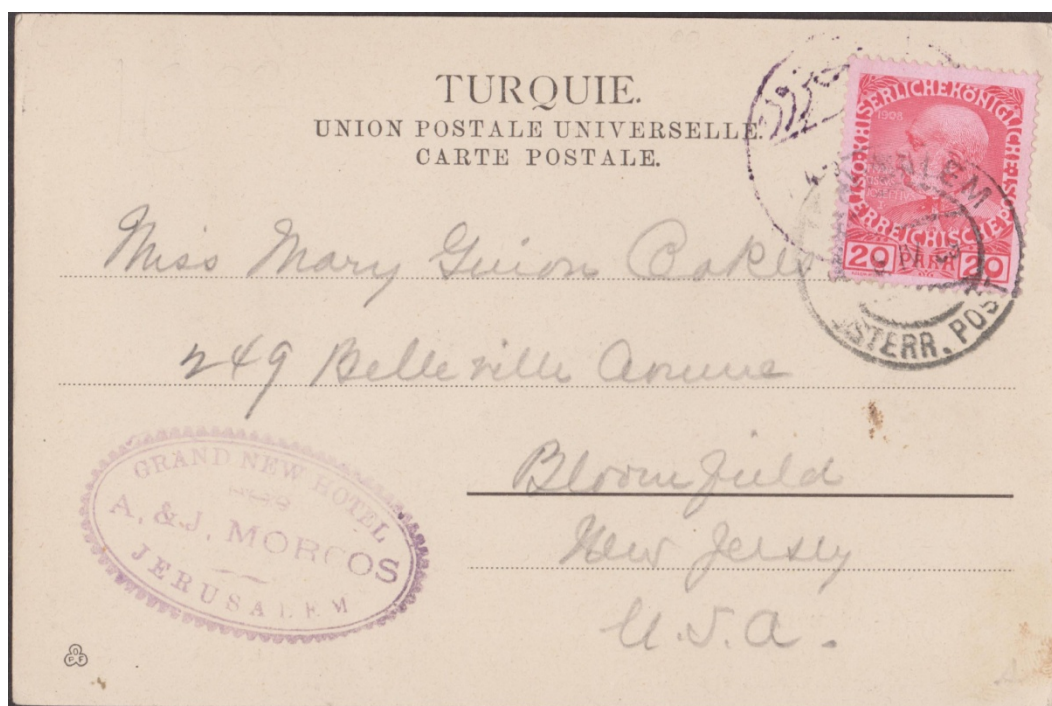 TURQUIE.
UNION POSTALE UNIVERSELLE.
CARTE POSTALE.
KAISERLICHEKÖNIGLICHE
ÖSTERREICHISCHEPOST
1908
20 PARA 20
JERUSALEM
ÖSTERR. POST
Miss Mary Guion Oakes
249 Belleville Avenue
Bloomfield
New Jersey
U.S.A.
GRAND NEW HOTEL
A. & J. MORCOS
JERUSALEM